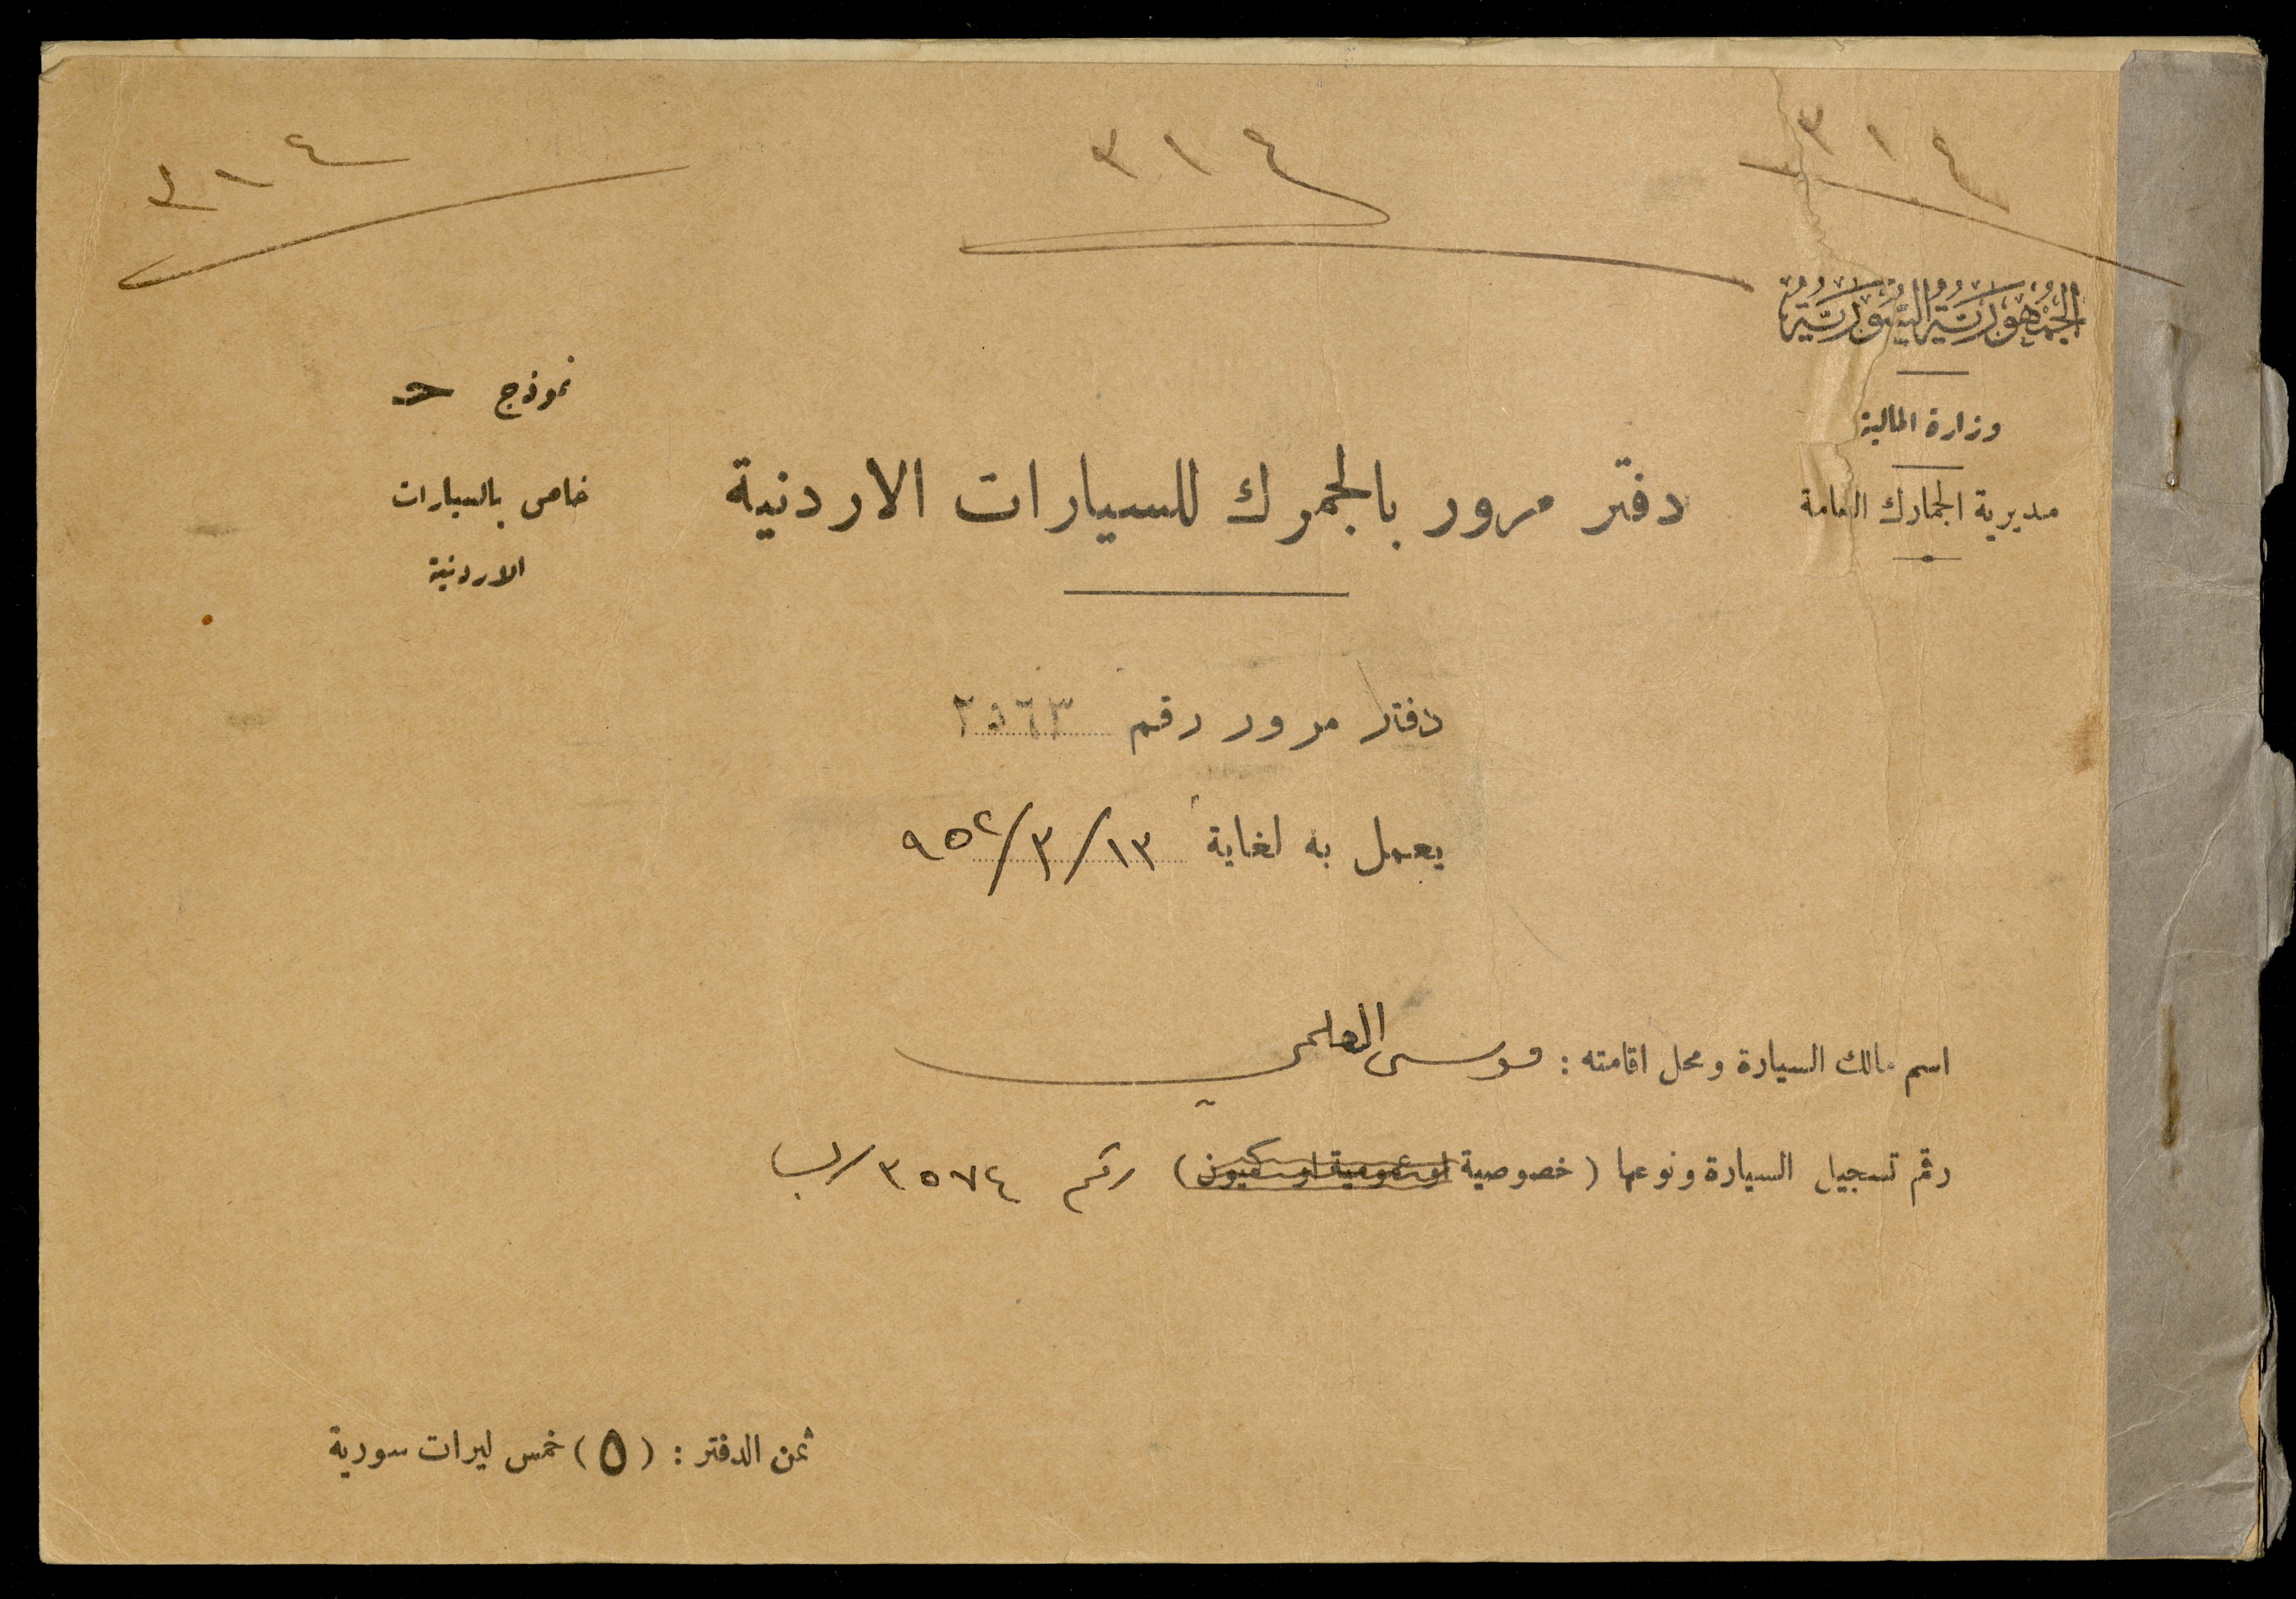 ٣١٤
٣١٤
٣١٤
الجمهورية السورية
وزارة المالية
مديرية الجمارك العامة
نموذج ح
خاص بالسيارات
الاردنية
دفتر مرور بالجمرك للسيارات الاردنية
دفتر مرور رقم ٢٥٦٣
يعمل به لغاية ١٣/٣/٩٥٢
اسم مالك السيارة ومحل اقامته : موسى العلمي
رقم تسجيل السيارة ونوعها ( خصوصية او عمومية او كميون ) رقم ٣٥٧٤/
ثمن الدفتر : (٥) خمس ليرات سورية